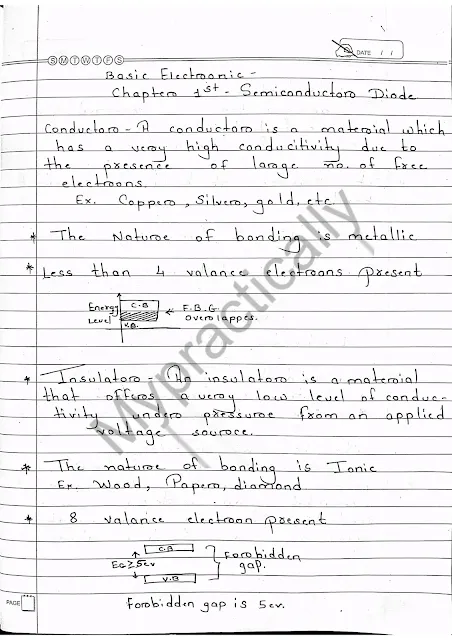 S M T W T F S
DATE / /
Basic Electronic -
Chapter 1st - Semiconductor Diode
Conductor - A conductor is a material which
has a very high conducitivity due to
the presence of large no. of free
electrons.
Ex. Copper, Silver, gold, etc.
* The Nature of bonding is metallic
* Less than 4 valance electrons present
Energy Level
C.B
V.B.
← F.B.G overlappes.
* Insulator - An insulator is a material
that offers a very low level of conduc-
tivity under pressure from an applied
voltage source.
* The nature of bonding is Ionic
Ex. Wood, Paper, diamond
* 8 valance electron present
C.B
EG≥5ev
V.B
Forbidden gap.
Forbidden gap is 5ev.
PAGE
Mypractically